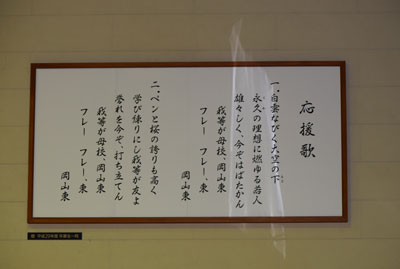 応援歌
一、白雲なびく大空の下
永久の理想に燃ゆる若人
雄々しく、今ぞはばたかん
我等が母校、岡山東
フレー フレー、東
岡山東
二、ペンと桜の誇りも高く
学び練りにし我等が友よ
誉れを今ぞ、打ち立てん
我等が母校、岡山東
フレー フレー、東
岡山東